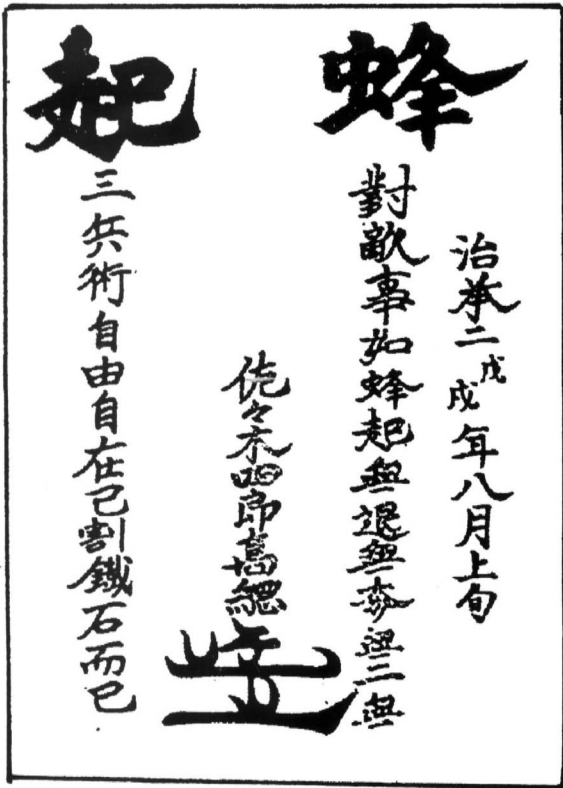 蜂起
治承二戊戌年八月上旬
對敵事如蜂起無退無無三無
佐々木四郎高綱
三兵術自由自在已割鐵石而已